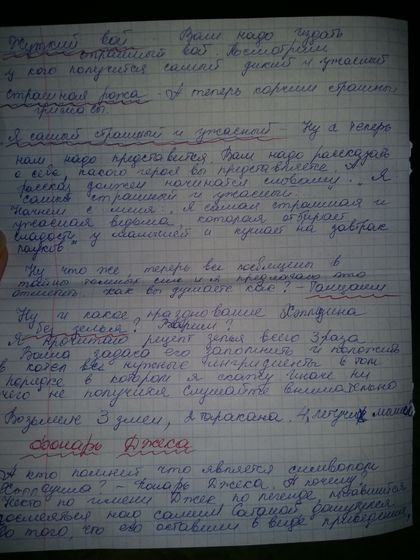 Жуткий вой - Вам надо издать
страшный вой. Посмотрим
у кого получится самый дикий и ужасный
страшная рожа - А теперь корчим страшные
гримасы.
Я самый страшный и ужасный - Ну а теперь
нам надо представится. Вам надо рассказать
о себе, какого героя вы представляете.
рассказ должен начинатся словами: „Я
самый страшный и ужасный"
Начнем с меня. „Я самая страшная и
ужасная ведьма, которая отбирает
сладости у малышей и кушает на завтрак
пауков"
Ну что же, теперь вы посвящены в
тайны и я предлагаю это
отметить. как вы думаете как? - Танцаем
Ну и какое празднование Хэллоуина
без зелья? Варим?
Я прочитаю рецепт зелья всего 3 раза
Ваша задача его запомнить и положить
в котел все нужные ингридиенты в том
порядке в котором я скажу иначе ни
чего не получится Слушайте внимательно
Возьмем 3 змеи, 2 таракана. 4 летучих мыши
Фонарь Джека
А кто помнит что является символом
Хэллоуина? - Фонарь Джека. А почему?
Некто по имени Джек, по легенде,
посмеяться над самим Сатаной,
до того, что его оставили в виде приведения,